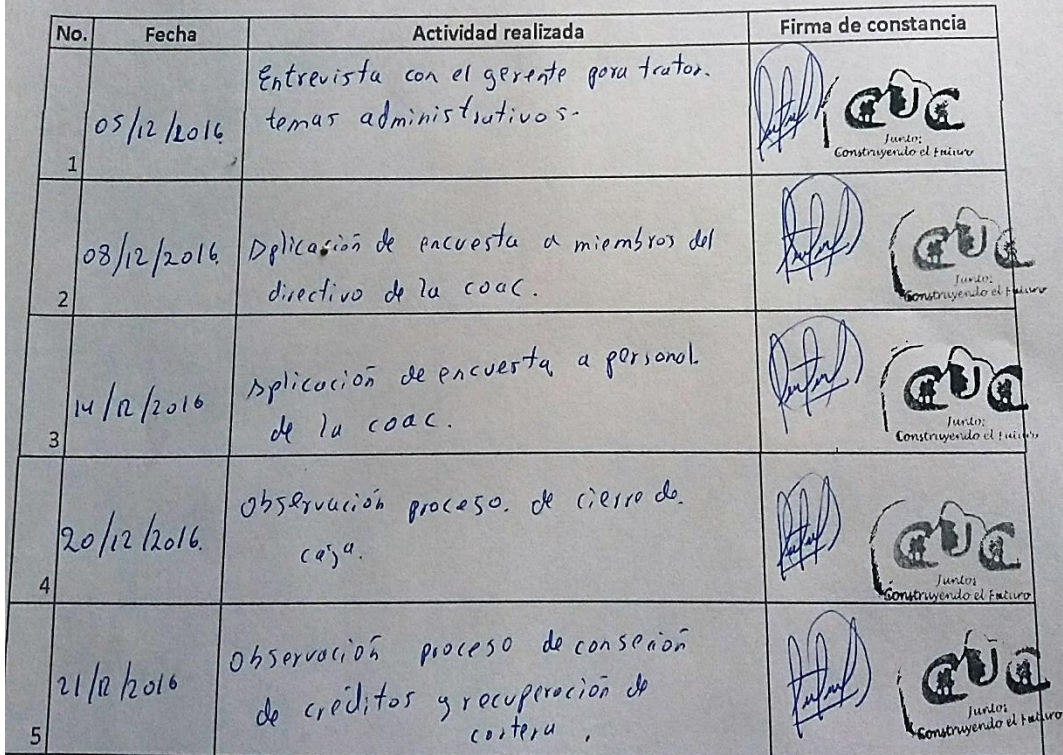 No. Fecha Actividad realizada Firma de constancia
Entrevista con el gerente para tratar.
05/12/2016 temas administrativos.
1
CUC
Juntos
Construyendo el Futuro
08/12/2016 Aplicación de encuesta a miembros del
directivo de la coac.
2
CUC
Juntos
Construyendo el Futuro
14/12/2016 Aplicación de encuesta a personal.
de la coac.
3
CUC
Juntos
Construyendo el Futuro
Observación proceso. de cierre de.
20/12/2016. caja.
4
CUC
Juntos
Construyendo el Futuro
Observación proceso de conseción
21/12/2016 de créditos y recuperación de
cartera.
5
CUC
Juntos
Construyendo el Futuro